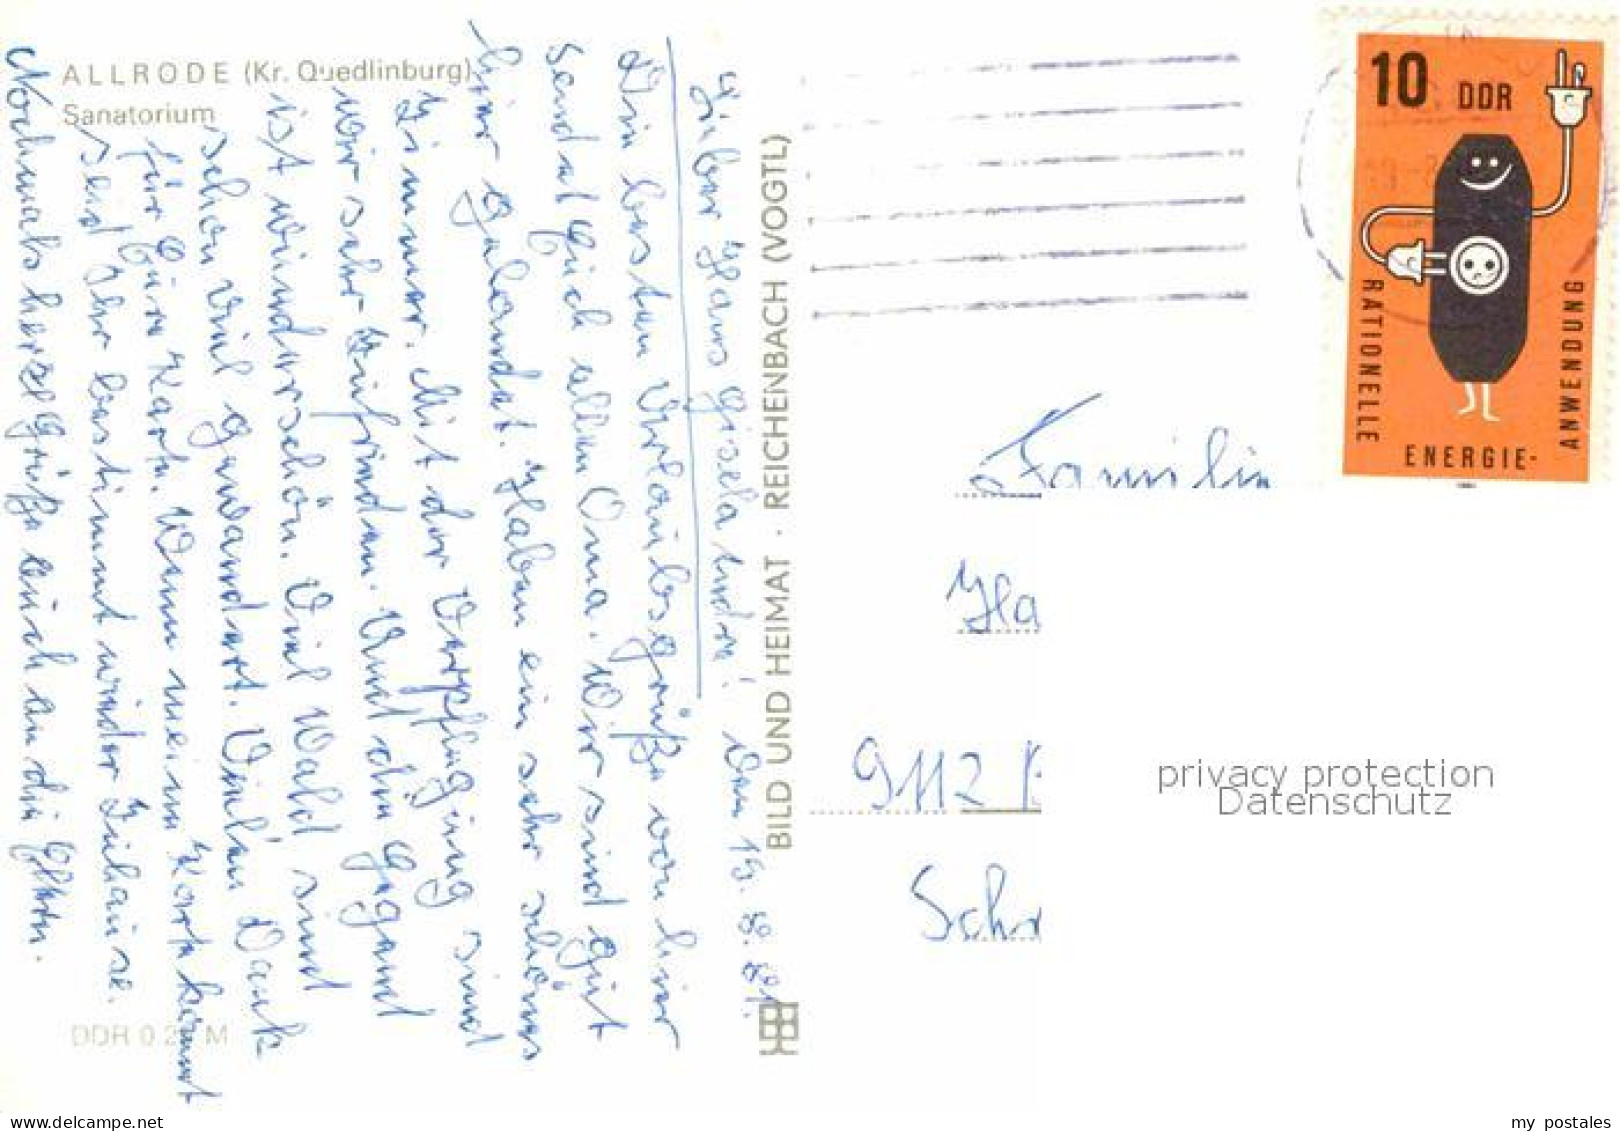 ALLRODE (Kr. Quedlinburg)
Sanatorium
Lieber Hans Gisela und ! Den 15. 8. 81.
Die besten Urlaubsgrüße von hier
sendet Euch allen Oma. Wir sind gut
hier gelandet. Haben ein sehr schönes
Zimmer. Mit der Verpflegung sind
wir sehr zufrieden. Und die Gegend
ist wunderschön. Viel Wald sind
schon viel gewandert. Vielen Dank
für Eure Karte. Wenn meine Karte kommt
seid Ihr bestimmt wieder Zuhause.
Nochmals herzl Grüße auch an die Eltern.
DDR 0 2 M
BILD UND HEIMAT · REICHENBACH (VOGTL)
10 DDR
RATIONELLE
ENERGIE-
ANWENDUNG
Familie
Ha
9112
Schr
privacy protection
Datenschutz
delcampe.net
my_postales